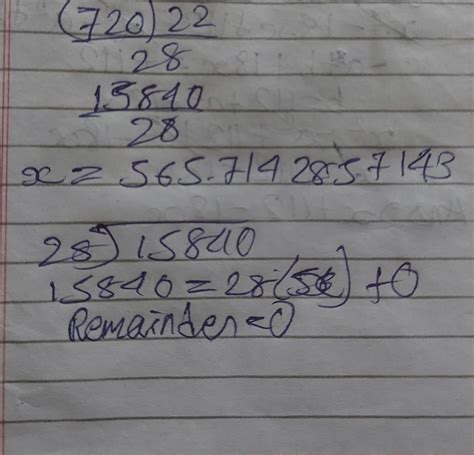 (720)22
28
15840
28
x = 565.7142857143
28)15840
15840 = 28(56) + 0
Remainder = 0